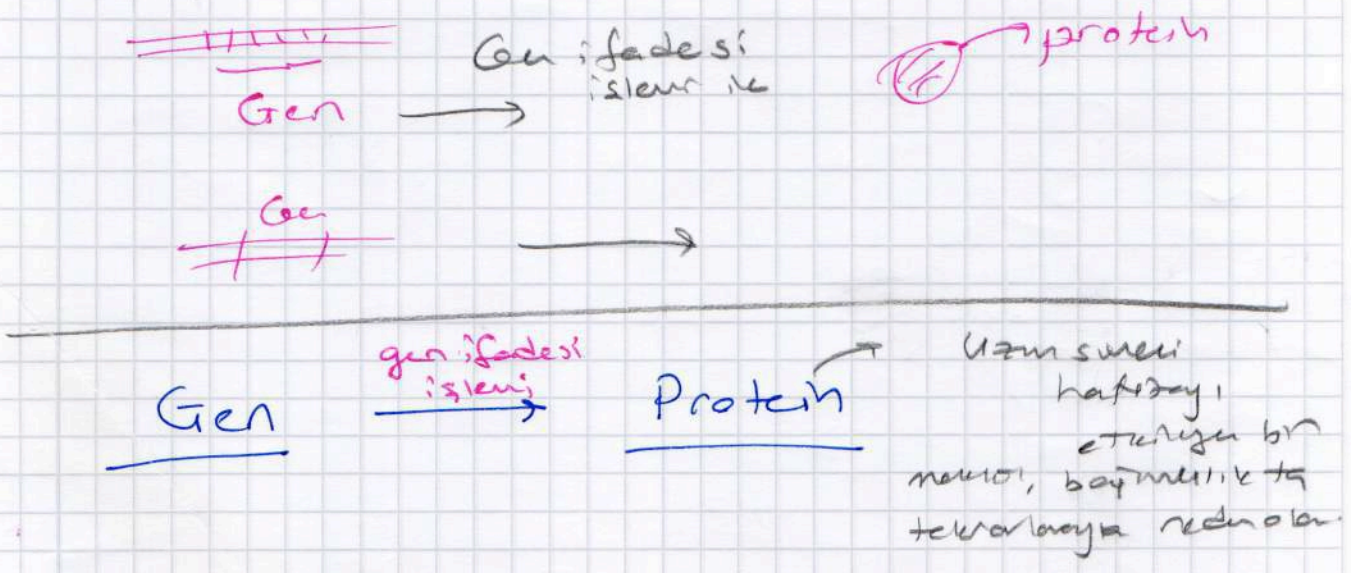 Gen ifadesi
işlemi ile
protein
Gen
Gen
gen ifadesi
işlemi
Gen
Protein
Uzun süreli
hafızayı
etkileyen bir
bağımlılıkta
tekrarlamaya neden olan